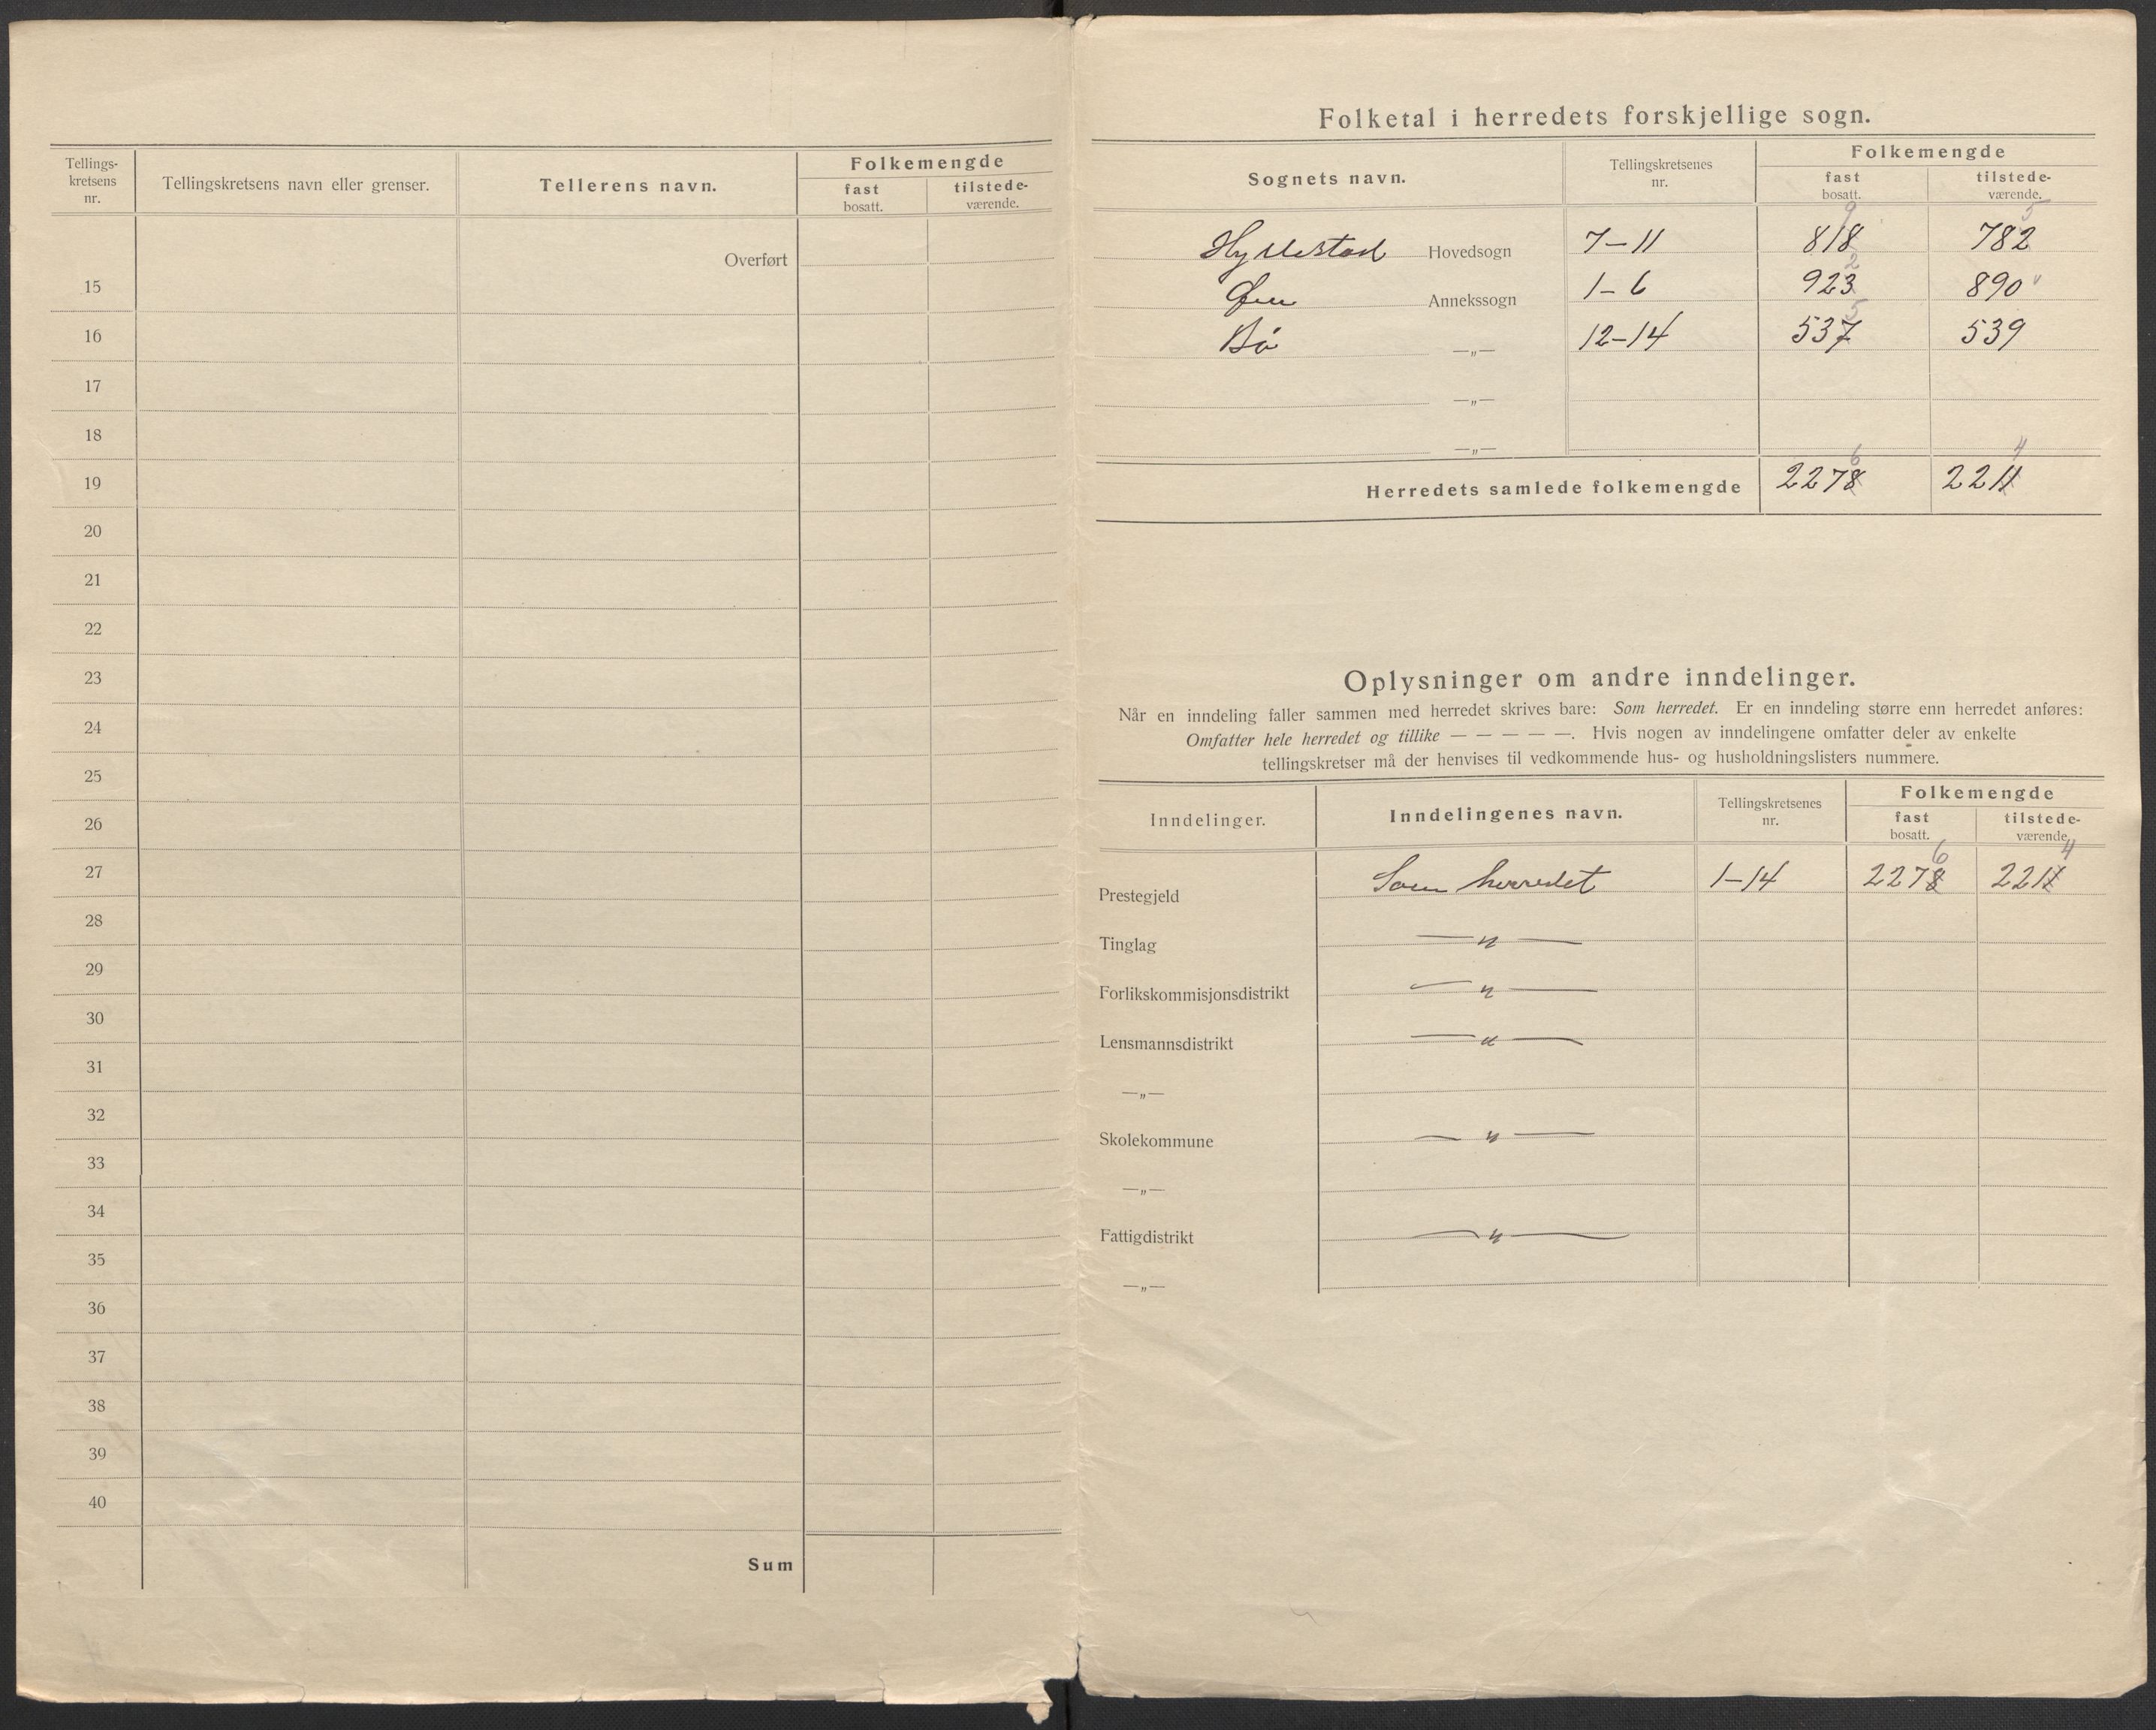 Tellings-
kretsens
nr.
Tellingskretsens navn eller grenser.
Tellerens navn.
Folkemengde
fast
bosatt.
tilstede-
værende.
Overført
15
16
17
18
19
20
21
22
23
24
25
26
27
28
29
30
31
32
33
34
35
36
37
38
39
40
Sum
Folketal i herredets forskjellige sogn.
Sognets navn.
Tellingskretsenes
nr.
Folkemengde
fast
bosatt.
tilstede-
værende.
9 5
Hyllestad Hovedsogn 7-11 818 782
2
Øen Annekssogn 1-6 923 890
5
Bø —„— 12-14 537 539
—„—
—„—
6 4
Herredets samlede folkemengde 2278 2211
Oplysninger om andre inndelinger.
Når en inndeling faller sammen med herredet skrives bare: Som herredet. Er en inndeling større enn herredet anføres:
Omfatter hele herredet og tillike — — — — —. Hvis nogen av inndelingene omfatter deler av enkelte
tellingskretser må der henvises til vedkommende hus- og husholdningslisters nummere.
Inndelinger.
Inndelingenes navn.
Tellingskretsenes
nr.
Folkemengde
fast
bosatt.
tilstede-
værende.
6 4
Prestegjeld Som herredet 1-14 2278 2211
Tinglag —„—
Forlikskommisjonsdistrikt —„—
Lensmannsdistrikt —„—
—„—
Skolekommune —„—
—„—
Fattigdistrikt —„—
—„—